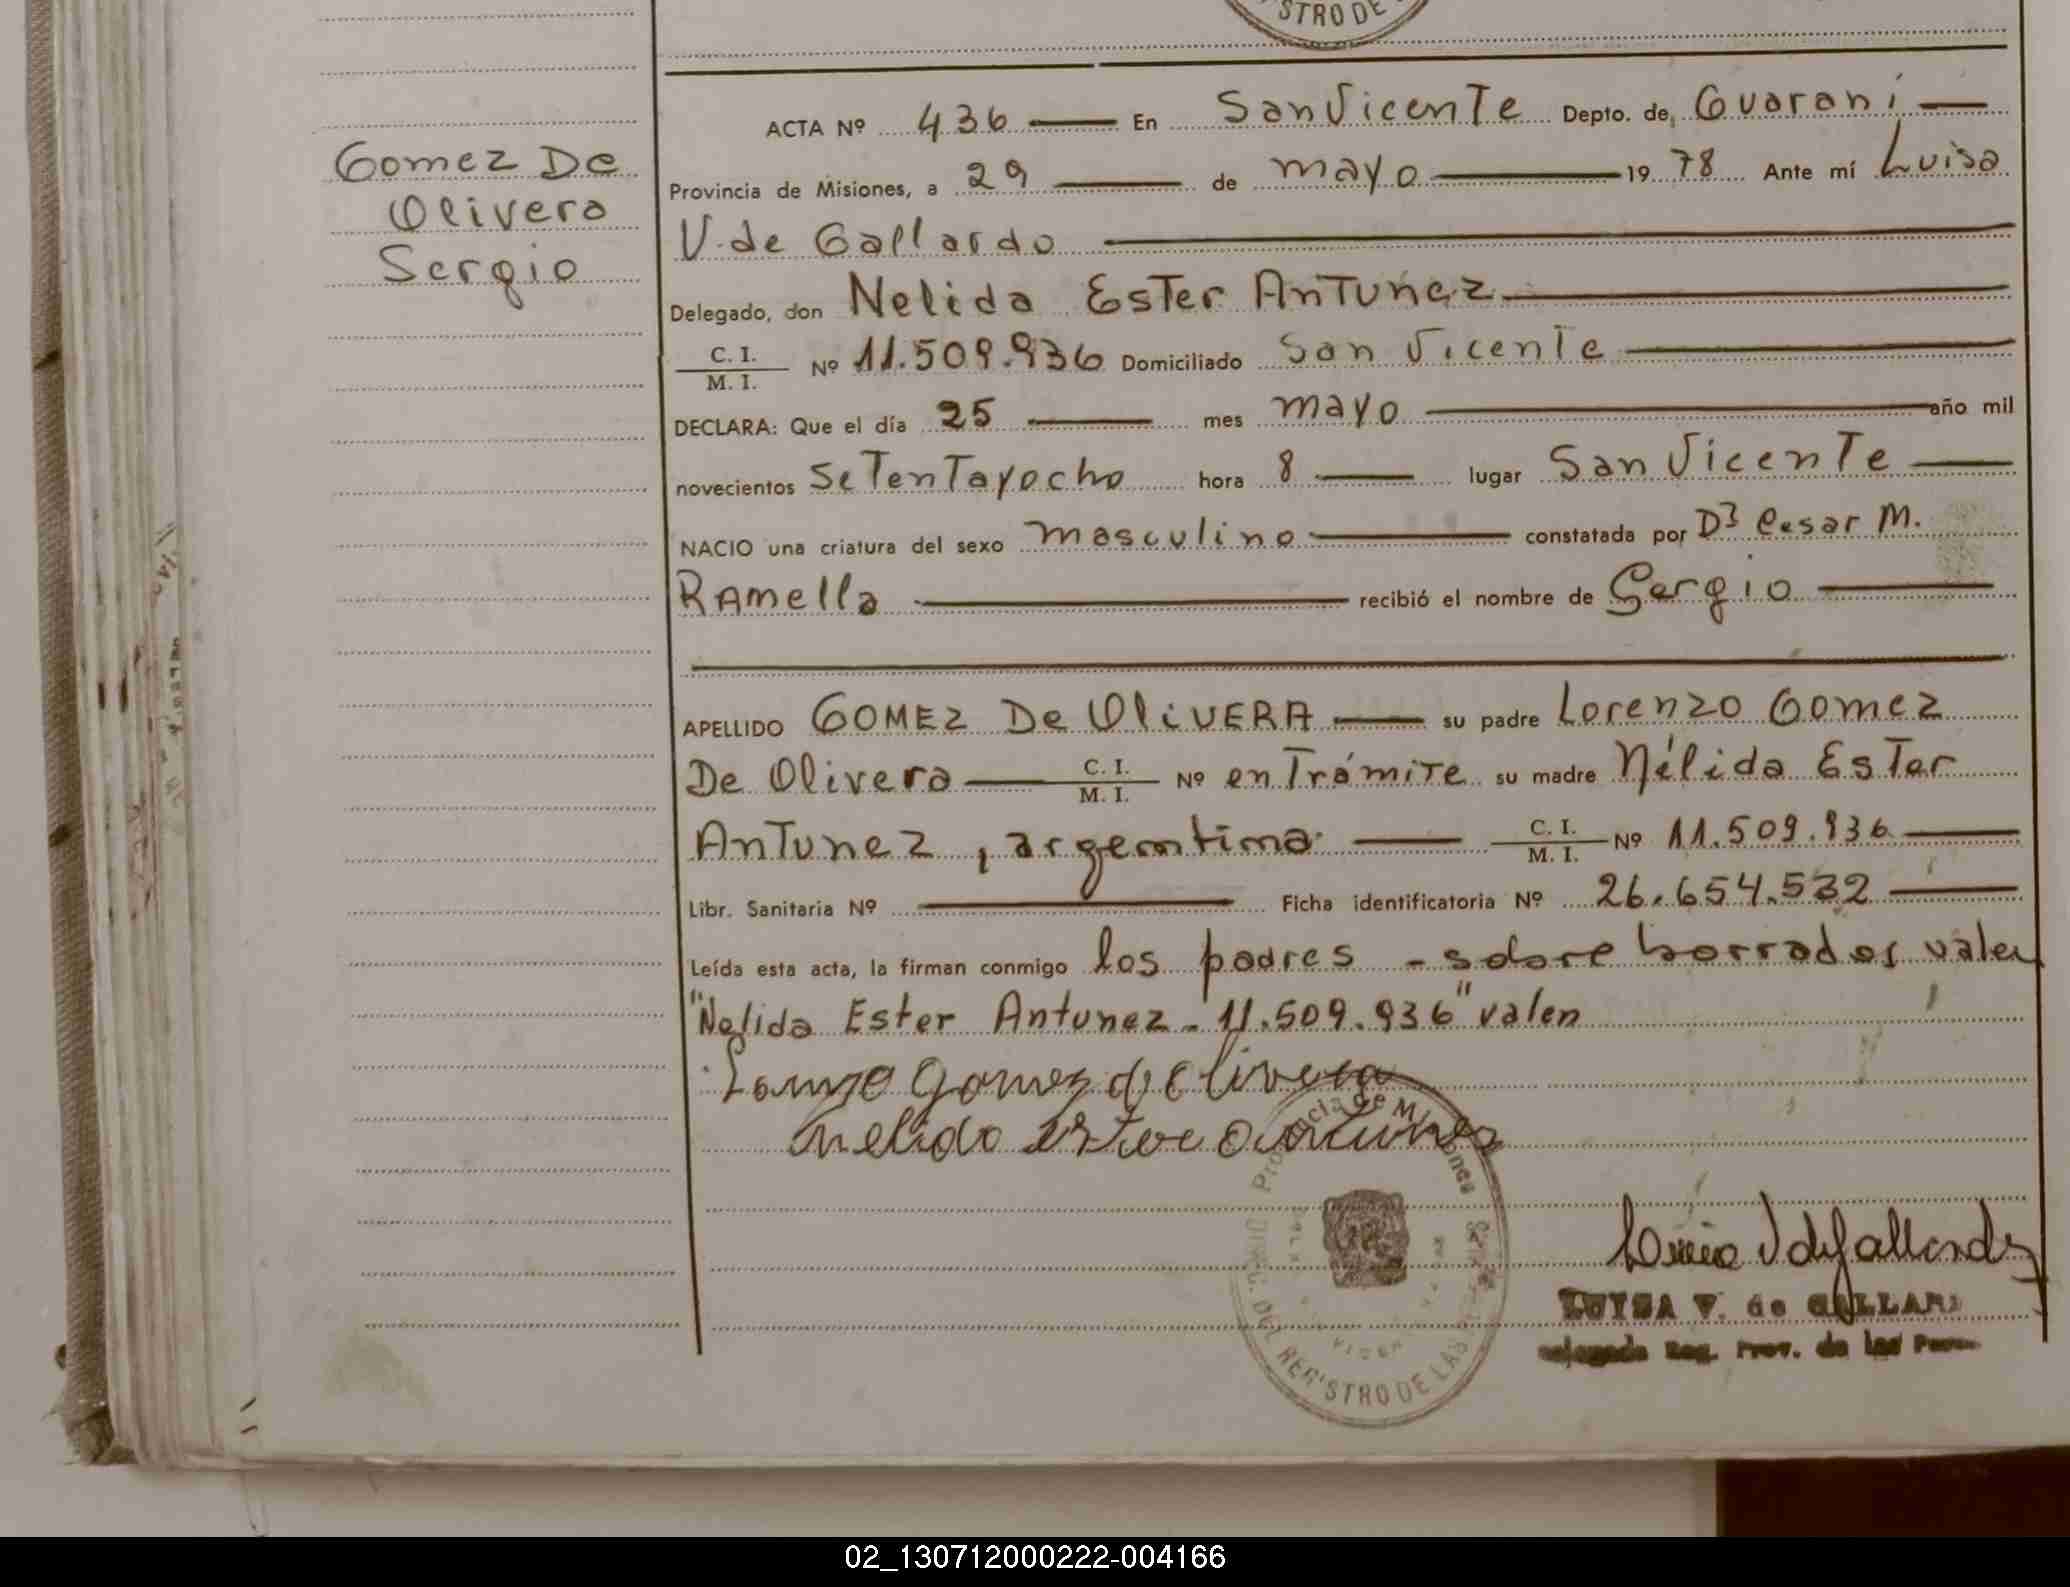 STRO DE
ACTA Nº 436 En San Vicente Depto. de Guaraní
Gomez De
Olivera
Sergio
Provincia de Misiones, a 29 de mayo 1978 Ante mí Luisa
V. de Gallardo
Delegado, don Nelida Ester Antunez
C. I.
M. I. Nº 11.509.936 Domiciliado San Vicente
DECLARA: Que el día 25 mes mayo año mil
novecientos setentayocho hora 8 lugar San Vicente
NACIO una criatura del sexo masculino constatada por Dr Cesar M.
Ramella recibió el nombre de Sergio
APELLIDO GOMEZ De OliVERA su padre Lorenzo Gomez
De Olivera C. I.
M. I. Nº en Trámite su madre Nélida Ester
Antunez, argentina C. I.
M. I. Nº 11.509.936
Libr. Sanitaria Nº Ficha identificatoria Nº 26.654.532
Leída esta acta, la firman conmigo los padres - sobre borrados valen
"Nelida Ester Antunez - 11.509.936" valen
Gomez de Olivera
Nelida Ester Antunez
Provincia de Misiones
DEL REGISTRO DE LAS
LUISA V. de GALLARD
Delegada Reg. Prov. de las Pers
02_130712000222-004166